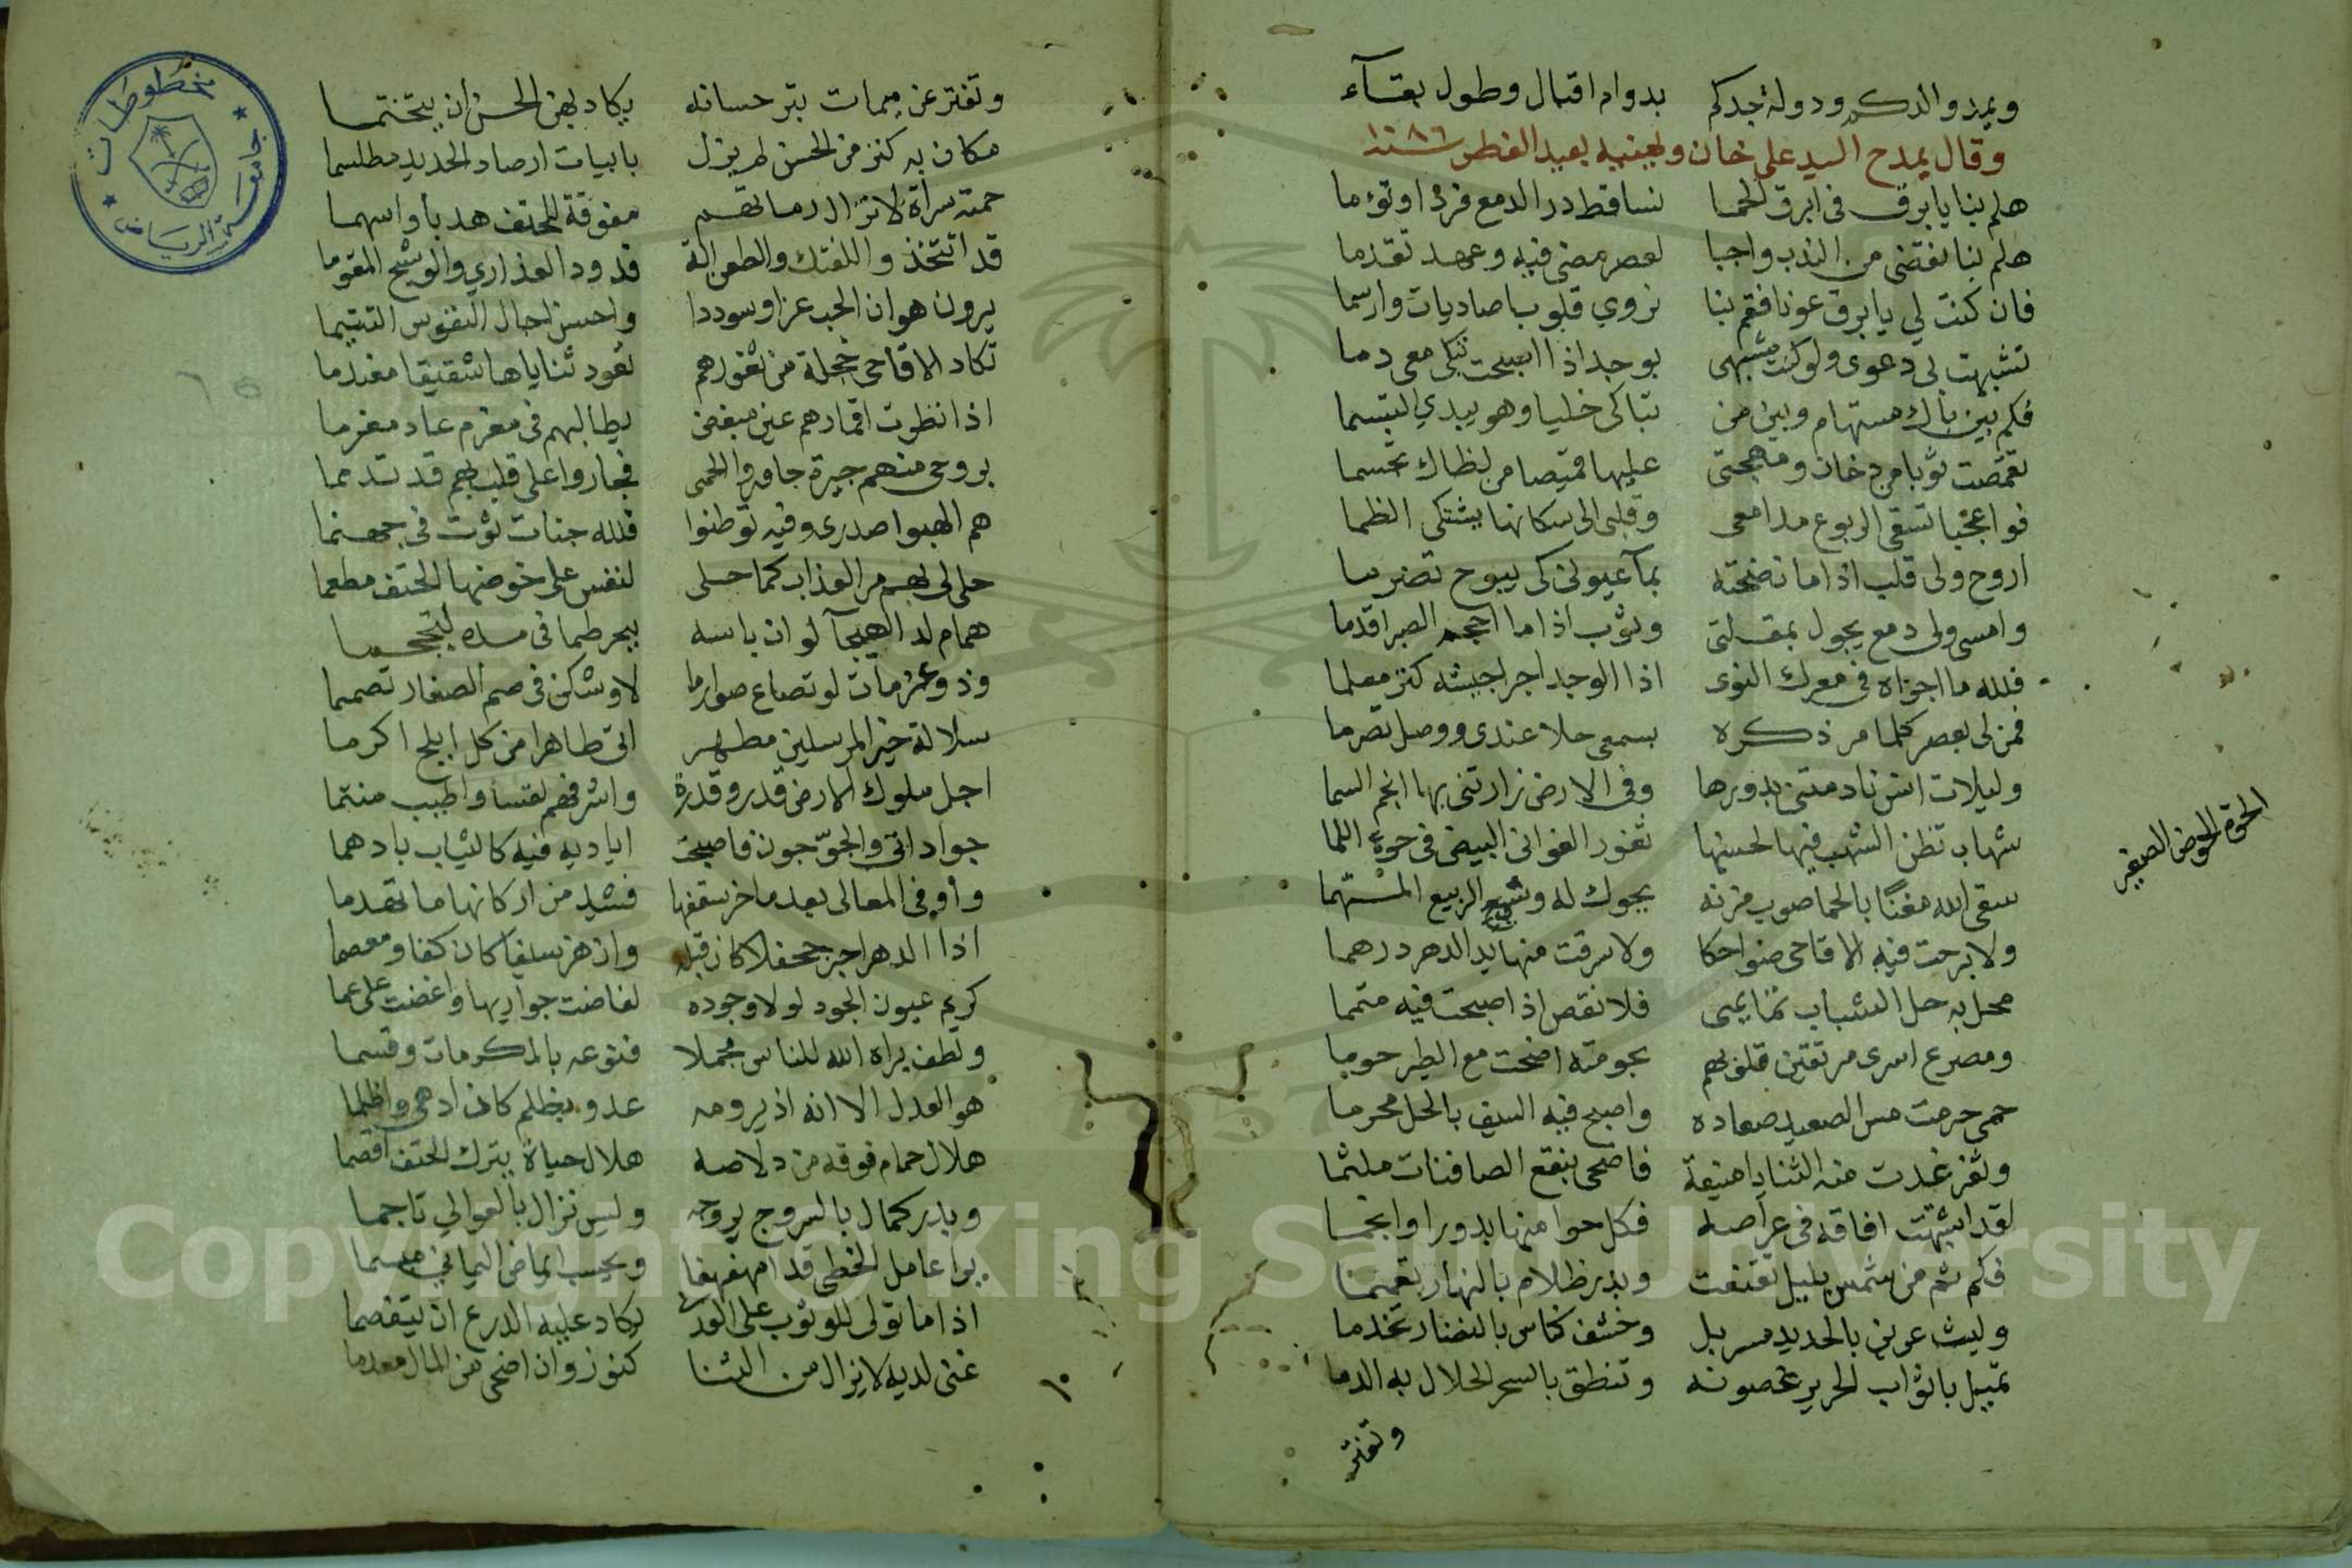 ويمد والدكم ودولة جدكم بدوام اقبال وطول بقآء
وقال يمدح السيد علي خان ويهنيه بعيد الفطر سنة ١٠٨٦
هلم بنا يا برق في ابرق الحما نساقط در الدمع فردا وتؤما
هلم بنا نقضي من الندب واجبا لعصر مضى فيه وعهد تقدما
فان كنت لي يا برق عونا فقم بنا نروي قلوبا صاديات وارسما
تشبهت بي دعوى ولو كنت مشبهي بوجد اذا اصبحت تبكي معي دما
فكم بين باك مستهام وبين من تباكى خليا وهو يبدي التبسما
تقمصت ثوبا من دخان ومهجتي عليها قميصا من لظاك تجسما
فواعجبا تسقي الربوع مدامعي وقلبي الى سكانها يشتكي الظما
اروح ولي قلب اذا ما نضحته بمآ عيوني كي يبوح تضرما
وامسي ولي دمع يجول بمقلتي وثوب اذا ما احجم الصبر اقدما
فلله ما اجراه في معرك النوى اذا الوجد اجرا جيشه كنز معلما
فمن لي بعصر كلما مر ذكره بسمعي حلا عندي ووصل تصرما
وليلات انس نادمتني بدورها وفي الارض زارتني بها انجم السما
شهاب تظن الشهب فيها لحسنها ثغور الغواني البيض في حوة اللما
سقى الله مغنًا بالحما صوب مزنه يحوك له وشي الربيع المسهما
ولا برحت فيه الاقاحي ضواحكا ولا سرقت منها يد الدهر درهما
محل به حل الشباب تمايمي فلا نقص اذ اصبحت فيه متمما
ومصرع اسرى مر تقتين قلوبهم بحومته اضحت مع الطير حوما
حمى حرمت مس الصعيد صعاده واصبح فيه السيف بالحل محرما
وثغر غدت منه الثنايا منيعة فاضحى بنقع الصافنات ملثما
لقد اشبهت افاقه في عراصه فكل حوا منها بدورا وانجما
فكم ثم من شمس بليل تقنعت وبدر ظلام بالنهار تعمما
وليث عرين بالحديد مسربل وخشف كناس بالنضار تختما
تميل باثواب الحرير غصونه وتنطق بالسحر الحلال به الدما
وتفتر
الحوة الحوض الصغير
وتفتر عن ميمات بتر حسانه يكاد بهن الحسن ان يتختما
مكان به كنز من الحسن لم يزل بابيات ارصاد الحديد مطلسما
حمته سراة لا تزال رماتهم مفوقة للحتف هدبا واسهما
قد اتخذوا للفتك والطعن الة قدود العذاري والوشيج المقوما
يرون هوان الحب عزا وسوددا واحسن اجال النفوس التتيما
تكاد الاقاحي خجلة من ثغورهم تعود ثناياها شقيقا معندما
اذا نظرت اقمارهم عين مبغض يطالبهم في مغرم عاد مغرما
بروحي منهم جيرة جاوروا الحمى فجاروا على قلب بهم قد تذمما
هم الهبوا صدري وفيه توطنوا فلله جنات ثوت في جهنما
حلى لي بهم مر العذاب كما حلى لنفس علي خوضها الحتف مطعما
همام لدا الهيجآ لو ان باسه ببحر طما في مده لتجحما
وذو عزمات لو تصاغ صوارما لاوشكن في صم الصفار تصمما
سلالة خير المرسلين مطهر اتى طاهرا من كل ابلج اكرما
اجل ملوك الارض قدر وقدرة واشرفهم نفسا واطيب منتما
جواد اتى والجوّ جون فاصبحت اياديه فيه كالشياب بادهما
واوفى المعالي بعدما خر سقفها فشيد من اركانها ما تهدما
اذا الدهر اجر جحفلا كان قبله وان هز سيفا كان كفا ومعصما
كريم عيون الجود لولا وجوده لغاضت جواريها واغضت على عما
ولطف براه الله للناس مجملا فنوعه بالمكرمات وقسما
هو العدل الا انه اذ يرومه عدو بظلم كان ادهى واظلما
هلال حمام فوقه من دلاصه هلال حياة يترك الحتف اقصما
وبدر كمال بالسروج بروجه وليس نزال بالعوالي تاجما
يرا عامل الخطي قدا مهفهفا ويحسب ايماض اليماني مبسما
اذا ما تولى للوثوب على العدى يكاد عليه الدرع ان يتفصما
غنى لديه لا يزال من الثنا كنوز وان اضحى من المال معدما
١٠
مخطوطات
جامعة الرياض
Copyright © King Saud University
1957